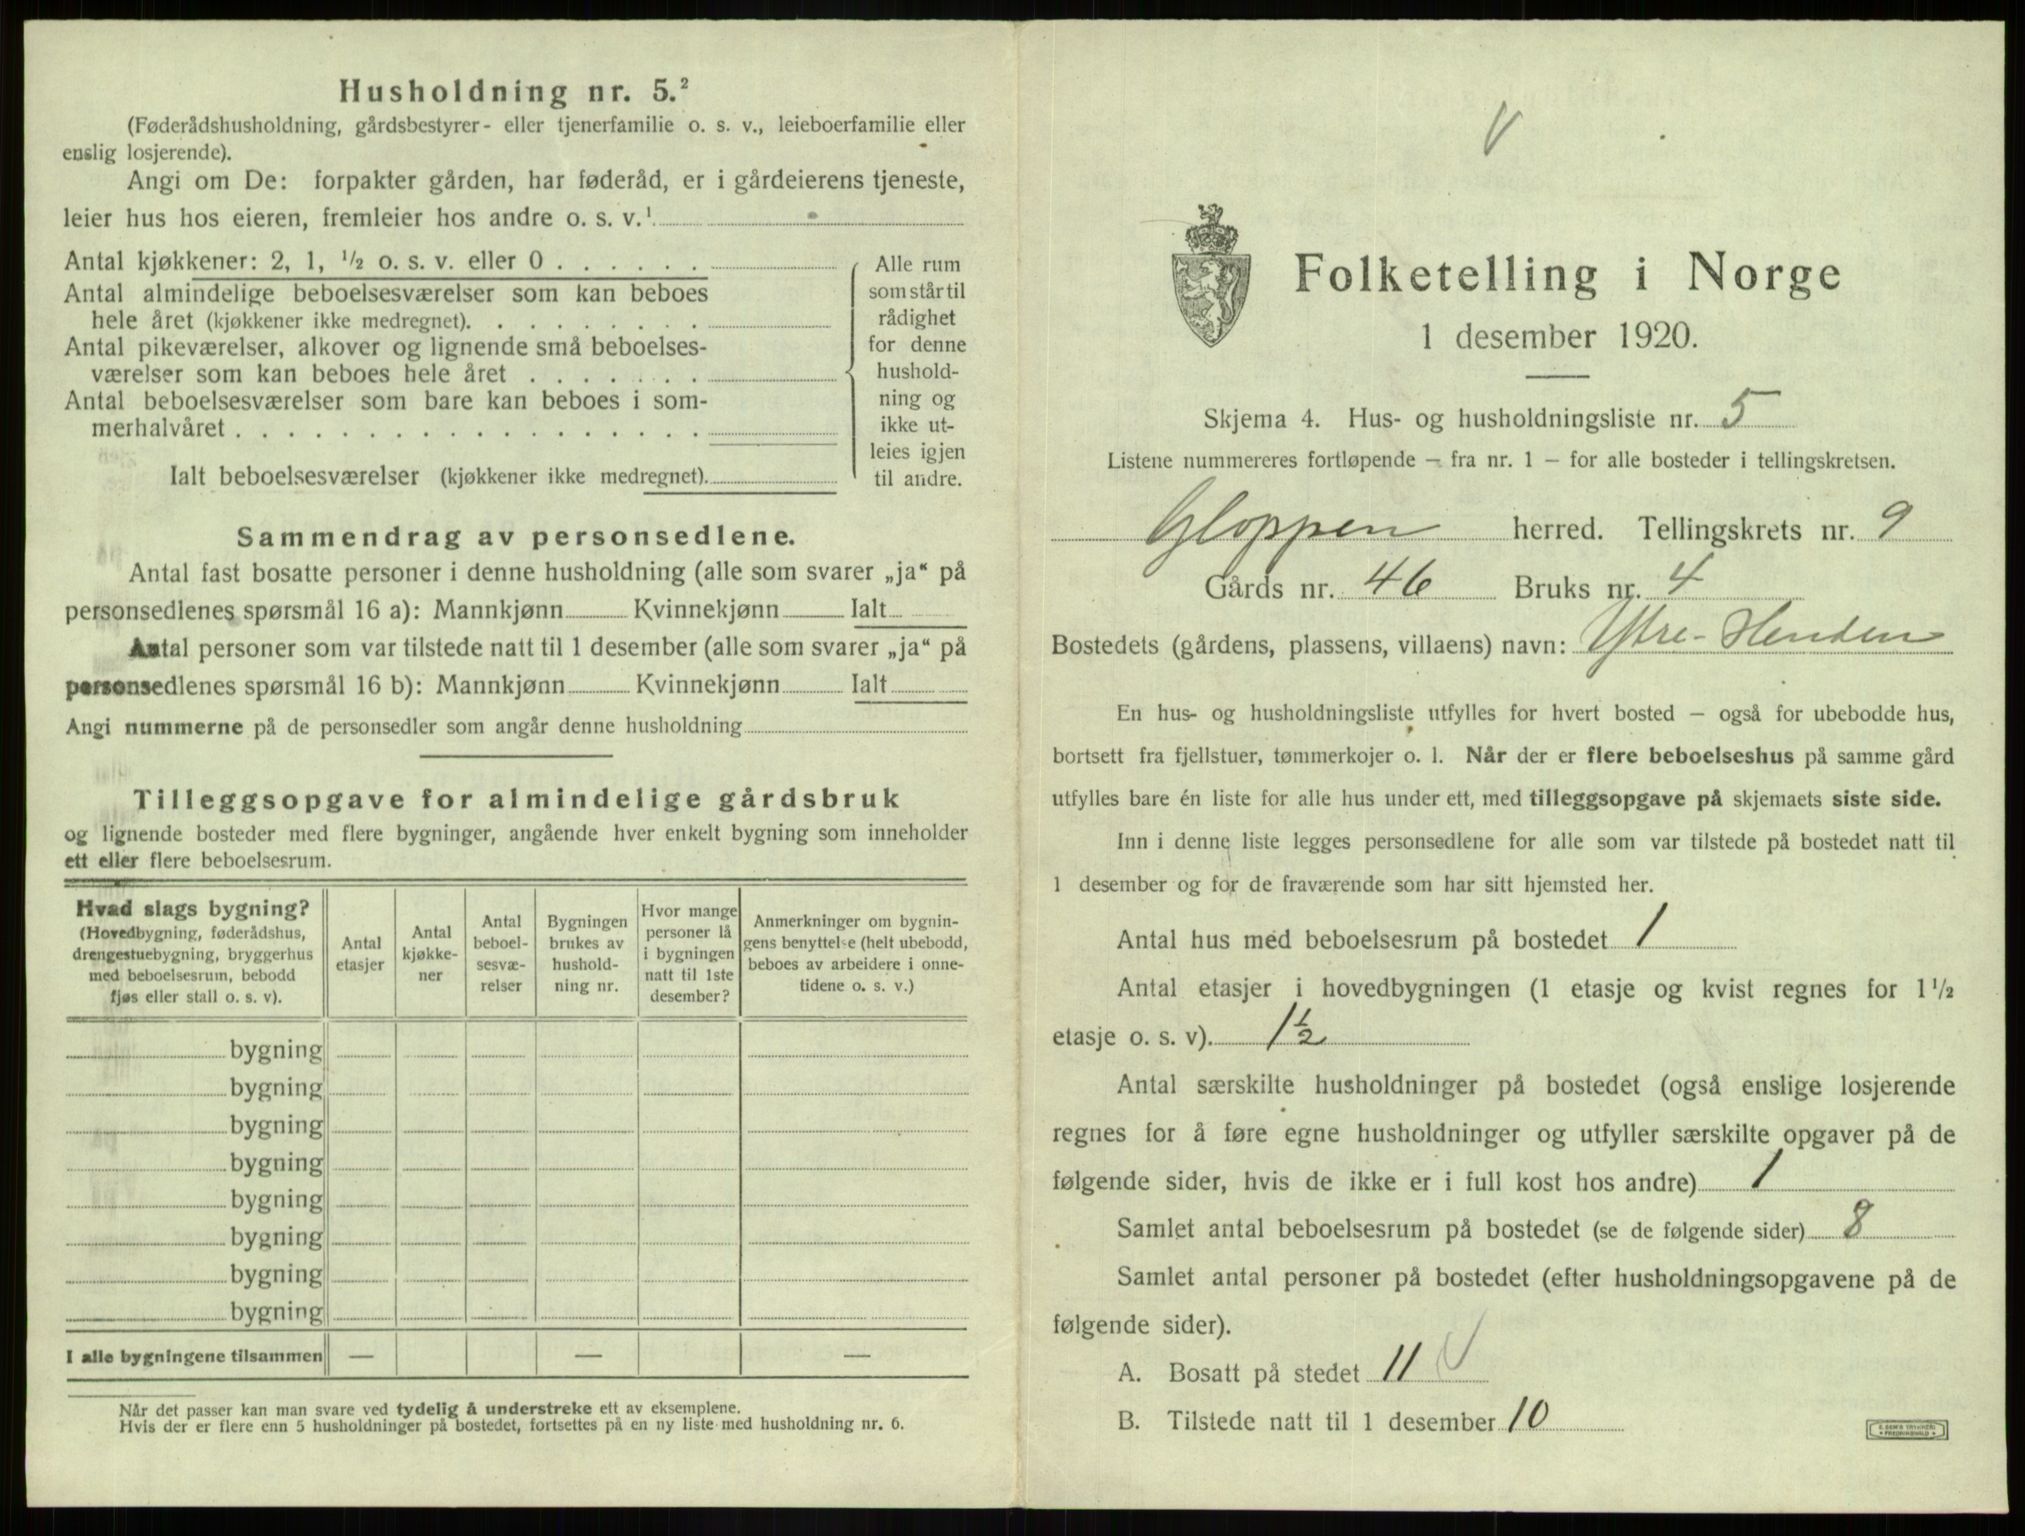 Husholdning nr. 5.²
(Føderådshusholdning, gårdsbestyrer- eller tjenerfamilie o. s. v., leieboerfamilie eller
enslig losjerende).
Angi om De: forpakter gården, har føderåd, er i gårdeierens tjeneste,
leier hus hos eieren, fremleier hos andre o. s. v.¹
Antal kjøkkener: 2, 1, ½ o. s. v. eller 0 . . . . . .
Antal almindelige beboelsesværelser som kan beboes
hele året (kjøkkener ikke medregnet). . . . . . . . .
Antal pikeværelser, alkover og lignende små beboelses-
værelser som kan beboes hele året . . . . . . .
Antal beboelsesværelser som bare kan beboes i som-
merhalvåret . . . . . . . . . . . . . . . . . .
Ialt beboelsesværelser (kjøkkener ikke medregnet).
Alle rum
som står til
rådighet
for denne
hushold-
ning og
ikke ut-
leies igjen
til andre.
Sammendrag av personsedlene.
Antal fast bosatte personer i denne husholdning (alle som svarer „ja“ på
personsedlenes spørsmål 16 a): Mannkjønn Kvinnekjønn Ialt
Antal personer som var tilstede natt til 1 desember (alle som svarer „ja“ på
personsedlenes spørsmål 16 b): Mannkjønn Kvinnekjønn Ialt
Angi nummerne på de personsedler som angår denne husholdning
Tilleggsopgave for almindelige gårdsbruk
og lignende bosteder med flere bygninger, angående hver enkelt bygning som inneholder
ett eller flere beboelsesrum.
Hvad slags bygning?
(Hovedbygning, føderådshus,
drengestuebygning, bryggerhus
med beboelsesrum, bebodd
fjøs eller stall o. s. v).
Antal
etasjer
Antal
kjøkke-
ner
Antal
beboel-
sesvæ-
relser
Bygningen
brukes av
hushold-
ning nr.
Hvor mange
personer lå
i bygningen
natt til 1ste
desember?
Anmerkninger om bygnin-
gens benyttelse (helt ubebodd,
beboes av arbeidere i onne-
tidene o. s. v.)
bygning
bygning
bygning
bygning
bygning
bygning
bygning
bygning
I alle bygningene tilsammen — — —
Når det passer kan man svare ved tydelig å understreke ett av eksemplene.
Hvis der er flere enn 5 husholdninger på bostedet, fortsettes på en ny liste med husholdning nr. 6.
Folketelling i Norge
1 desember 1920.
Skjema 4. Hus- og husholdningsliste nr. 5
Listene nummereres fortløpende – fra nr. 1 – for alle bosteder i tellingskretsen.
Gloppen herred. Tellingskrets nr. 9
Gårds nr. 46 Bruks nr. 4
Bostedets (gårdens, plassens, villaens) navn: Ytre-Henden
En hus- og husholdningsliste utfylles for hvert bosted – også for ubebodde hus,
bortsett fra fjellstuer, tømmerkojer o. l. Når der er flere beboelseshus på samme gård
utfylles bare én liste for alle hus under ett, med tilleggsopgave på skjemaets siste side.
Inn i denne liste legges personsedlene for alle som var tilstede på bostedet natt til
1 desember og for de fraværende som har sitt hjemsted her.
Antal hus med beboelsesrum på bostedet 1
Antal etasjer i hovedbygningen (1 etasje og kvist regnes for 1½
etasje o. s. v). 1½
Antal særskilte husholdninger på bostedet (også enslige losjerende
regnes for å føre egne husholdninger og utfyller særskilte opgaver på de
følgende sider, hvis de ikke er i full kost hos andre) 1
Samlet antal beboelsesrum på bostedet (se de følgende sider) 8
Samlet antal personer på bostedet (efter husholdningsopgavene på de
følgende sider).
A. Bosatt på stedet 11
B. Tilstede natt til 1 desember 10